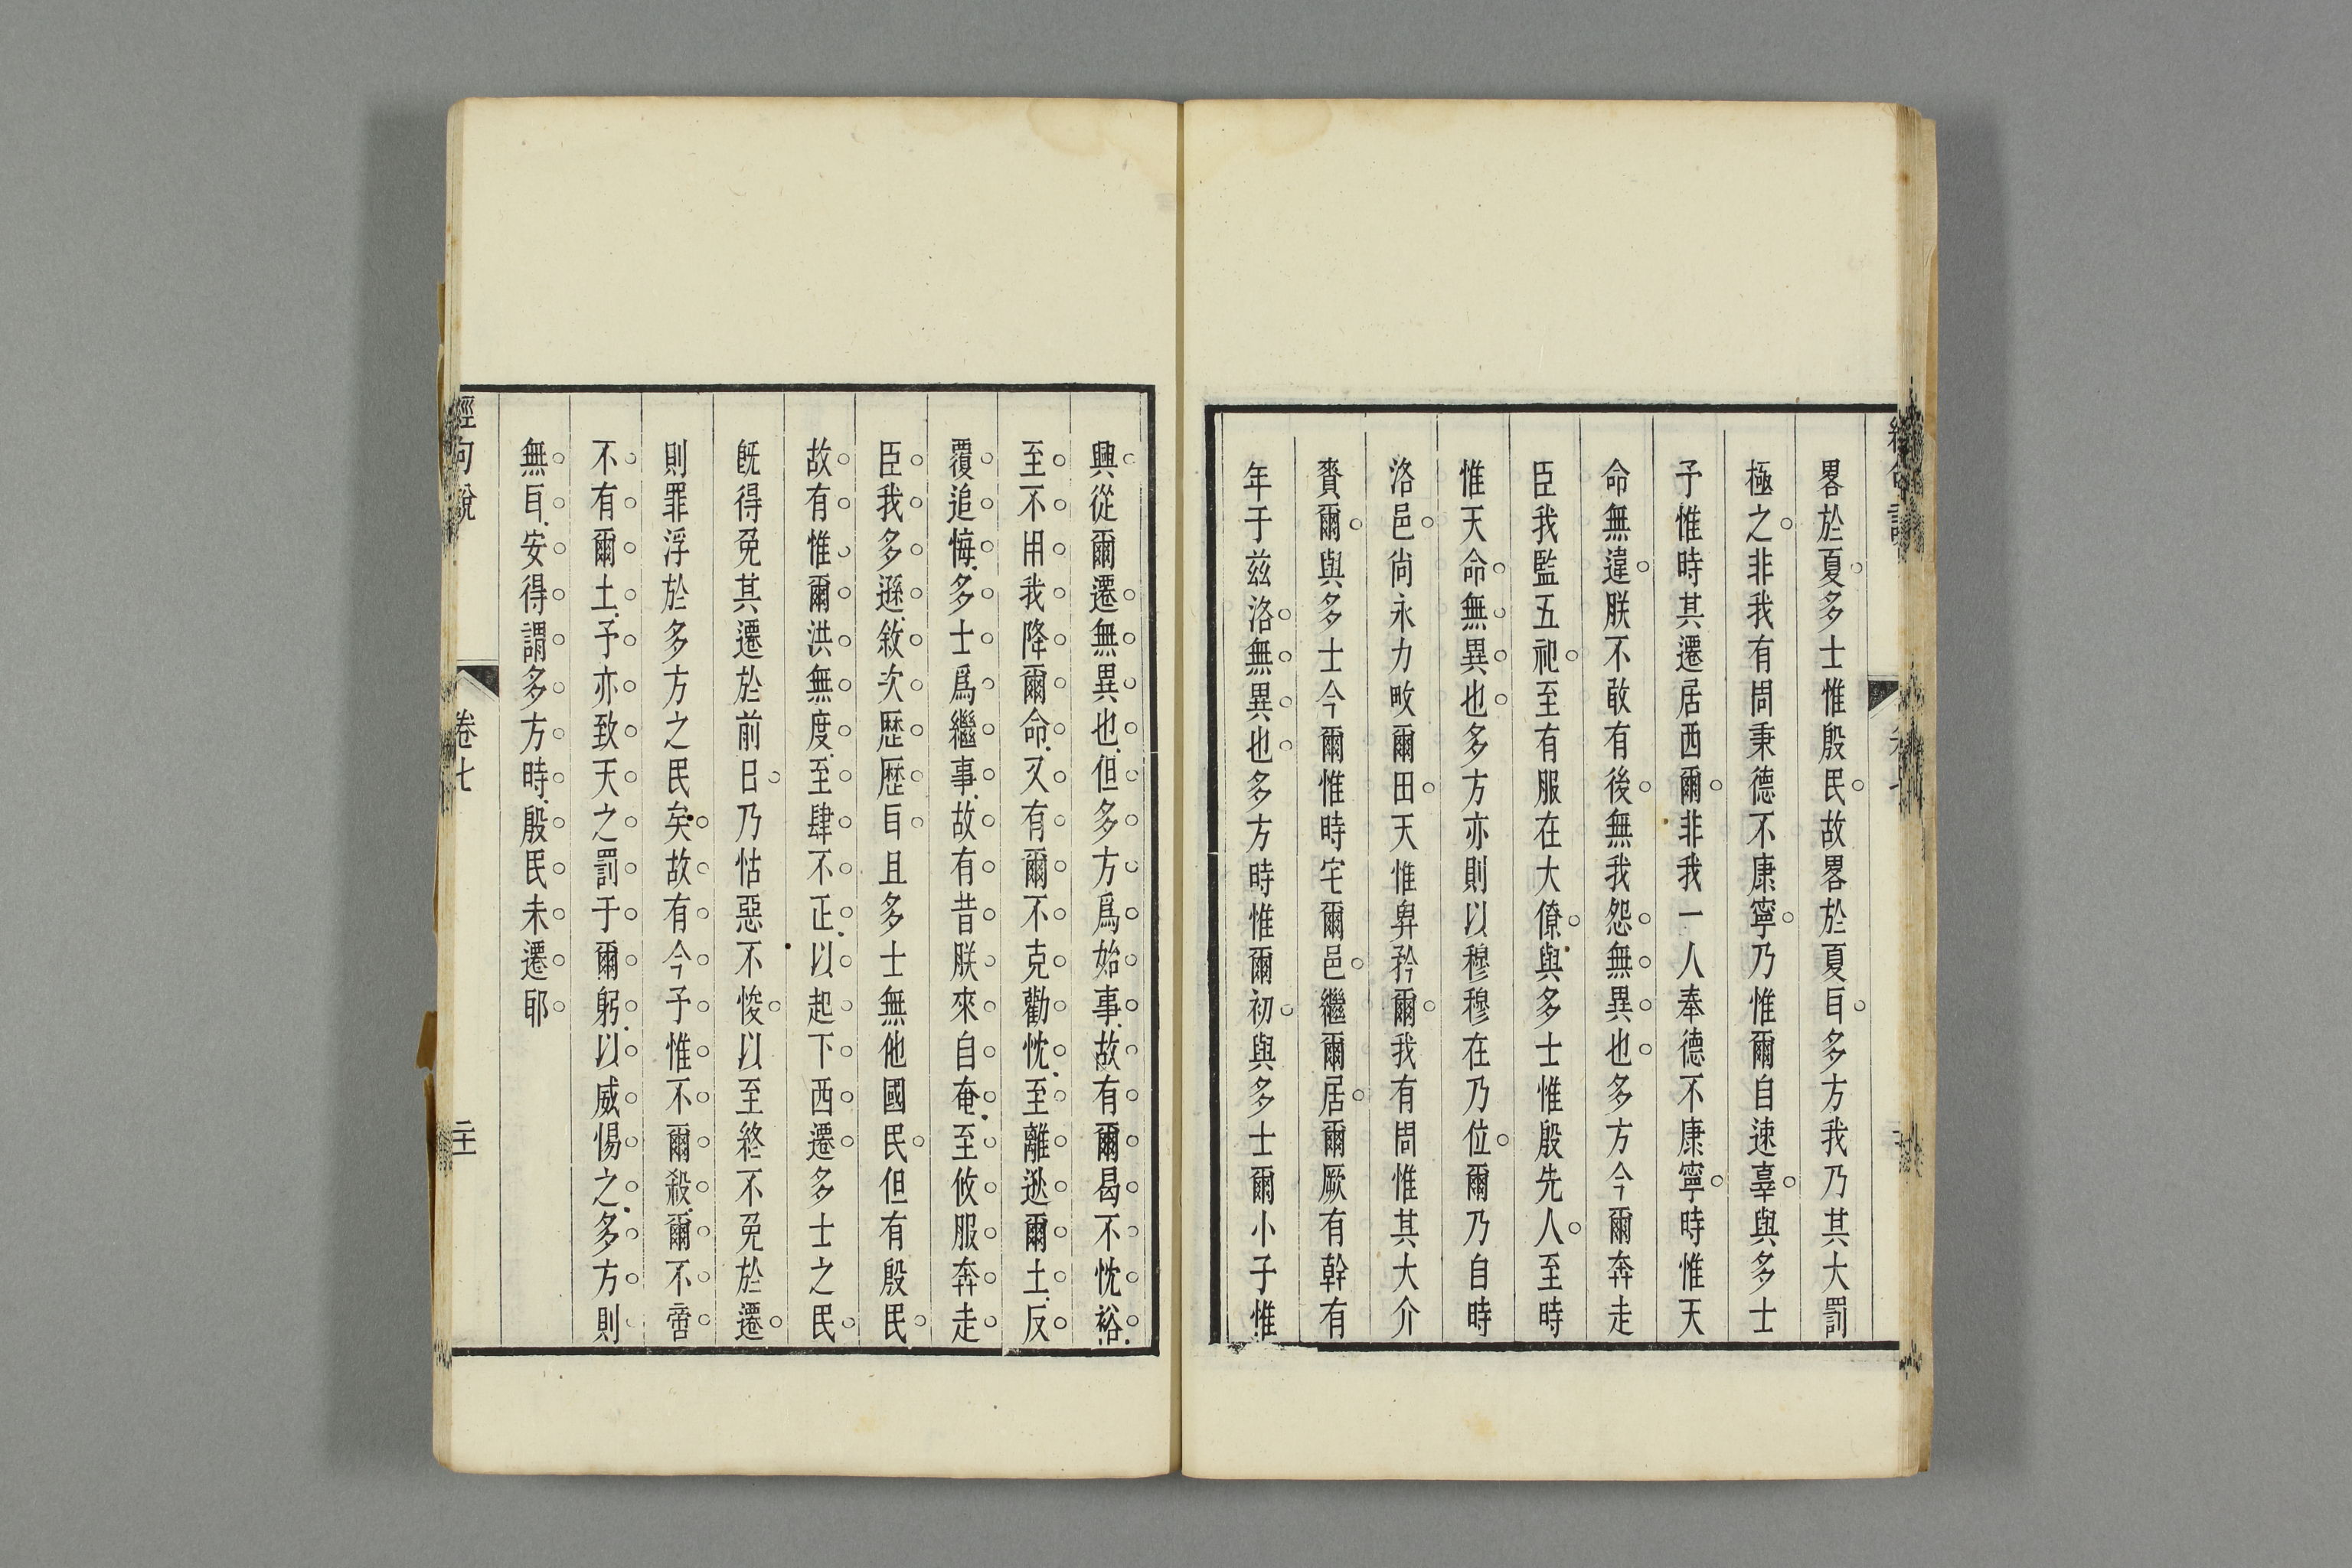 畧於夏多士惟殷民故畧於夏㠯多方我乃其大罰
極之非我有周秉德不康寧乃惟爾自速辜與多士
予惟時其遷居西爾非我一人奉德不康寧時惟天
命無違朕不敢有後無我怨無異也多方今爾奔走
臣我監五祀至有服在大僚與多士惟殷先人至時
惟天命無異也多方亦則以穆穆在乃位爾乃自時
洛邑尚永力畋爾田天惟畀矜爾我有周惟其大介
賚爾與多士今爾惟時宅爾邑繼爾居爾厥有幹有
年于兹洛無異也多方時惟爾初與多士爾小子惟
興從爾遷無異也但多方爲始事故有爾曷不忱裕
至不用我降爾命又有爾不克勸忱至離逖爾土反
覆追悔多士爲繼事故有昔朕來自奄至攸服奔走
臣我多遜敘次歷歷㠯且多士無他國民但有殷民
故有惟爾洪無度至肆不正以起下西遷多士之民
旣得免其遷於前日乃怙惡不悛以至終不免於遷
則罪浮於多方之民矣故有今予惟不爾殺爾不啻
不有爾土予亦致天之罰于爾躬以威惕之多方則
無㠯安得謂多方時殷民未遷耶
經句說
卷七
二十